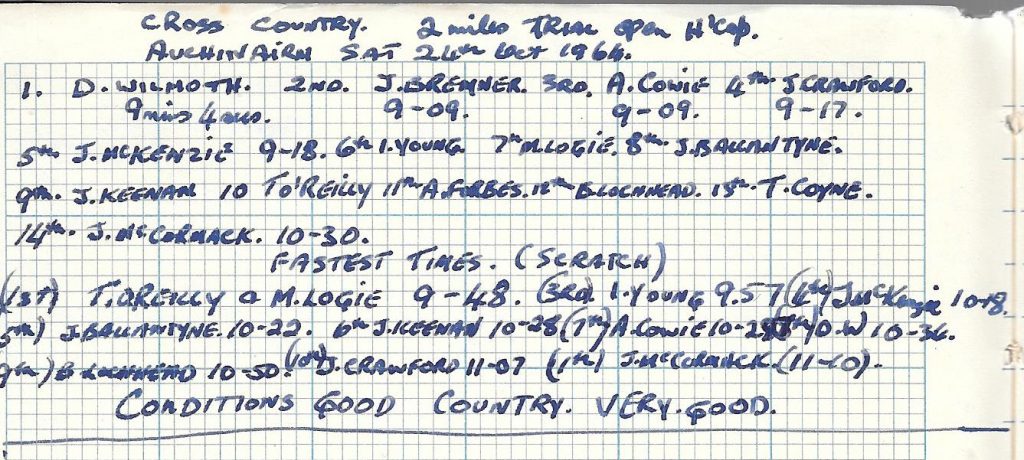 CROSS COUNTRY. 2 miles TRIAL open H'Cap.
AUCHINAIRN SAT 24th Oct 1964.
1. D. WILMOTH. 2ND. J. BREMNER. 3RD. A. COWIE 4th J CRAWFORD.
9 mins 4 secs. 9-09. 9-09. 9-17.
5th J. McKENZIE 9-18. 6th I. YOUNG 7th M. LOGIE. 8th J. BALLANTYNE.
9th. J. KEENAN 10 T O'REILLY 11th A. FORBES. 12th B. LOCHHEAD. 13th. T. COYNE.
14th. J. McCORMACK. 10-30.
FASTEST TIMES. (SCRATCH)
(1ST) T. O'REILLY & M. LOGIE 9-48. (3RD) I. YOUNG 9.57 (4th) J McKenzie 10-18.
5th) J. BALLANTYNE. 10-22. 6th J. KEENAN 10-28 (7th) A. COWIE 10-29 D. W 10-36.
9th) B LOCHHEAD 10-50. (10th) J. CRAWFORD 11-07 (11th) J. McCORMACK. (11-10).
CONDITIONS GOOD COUNTRY. VERY. GOOD.